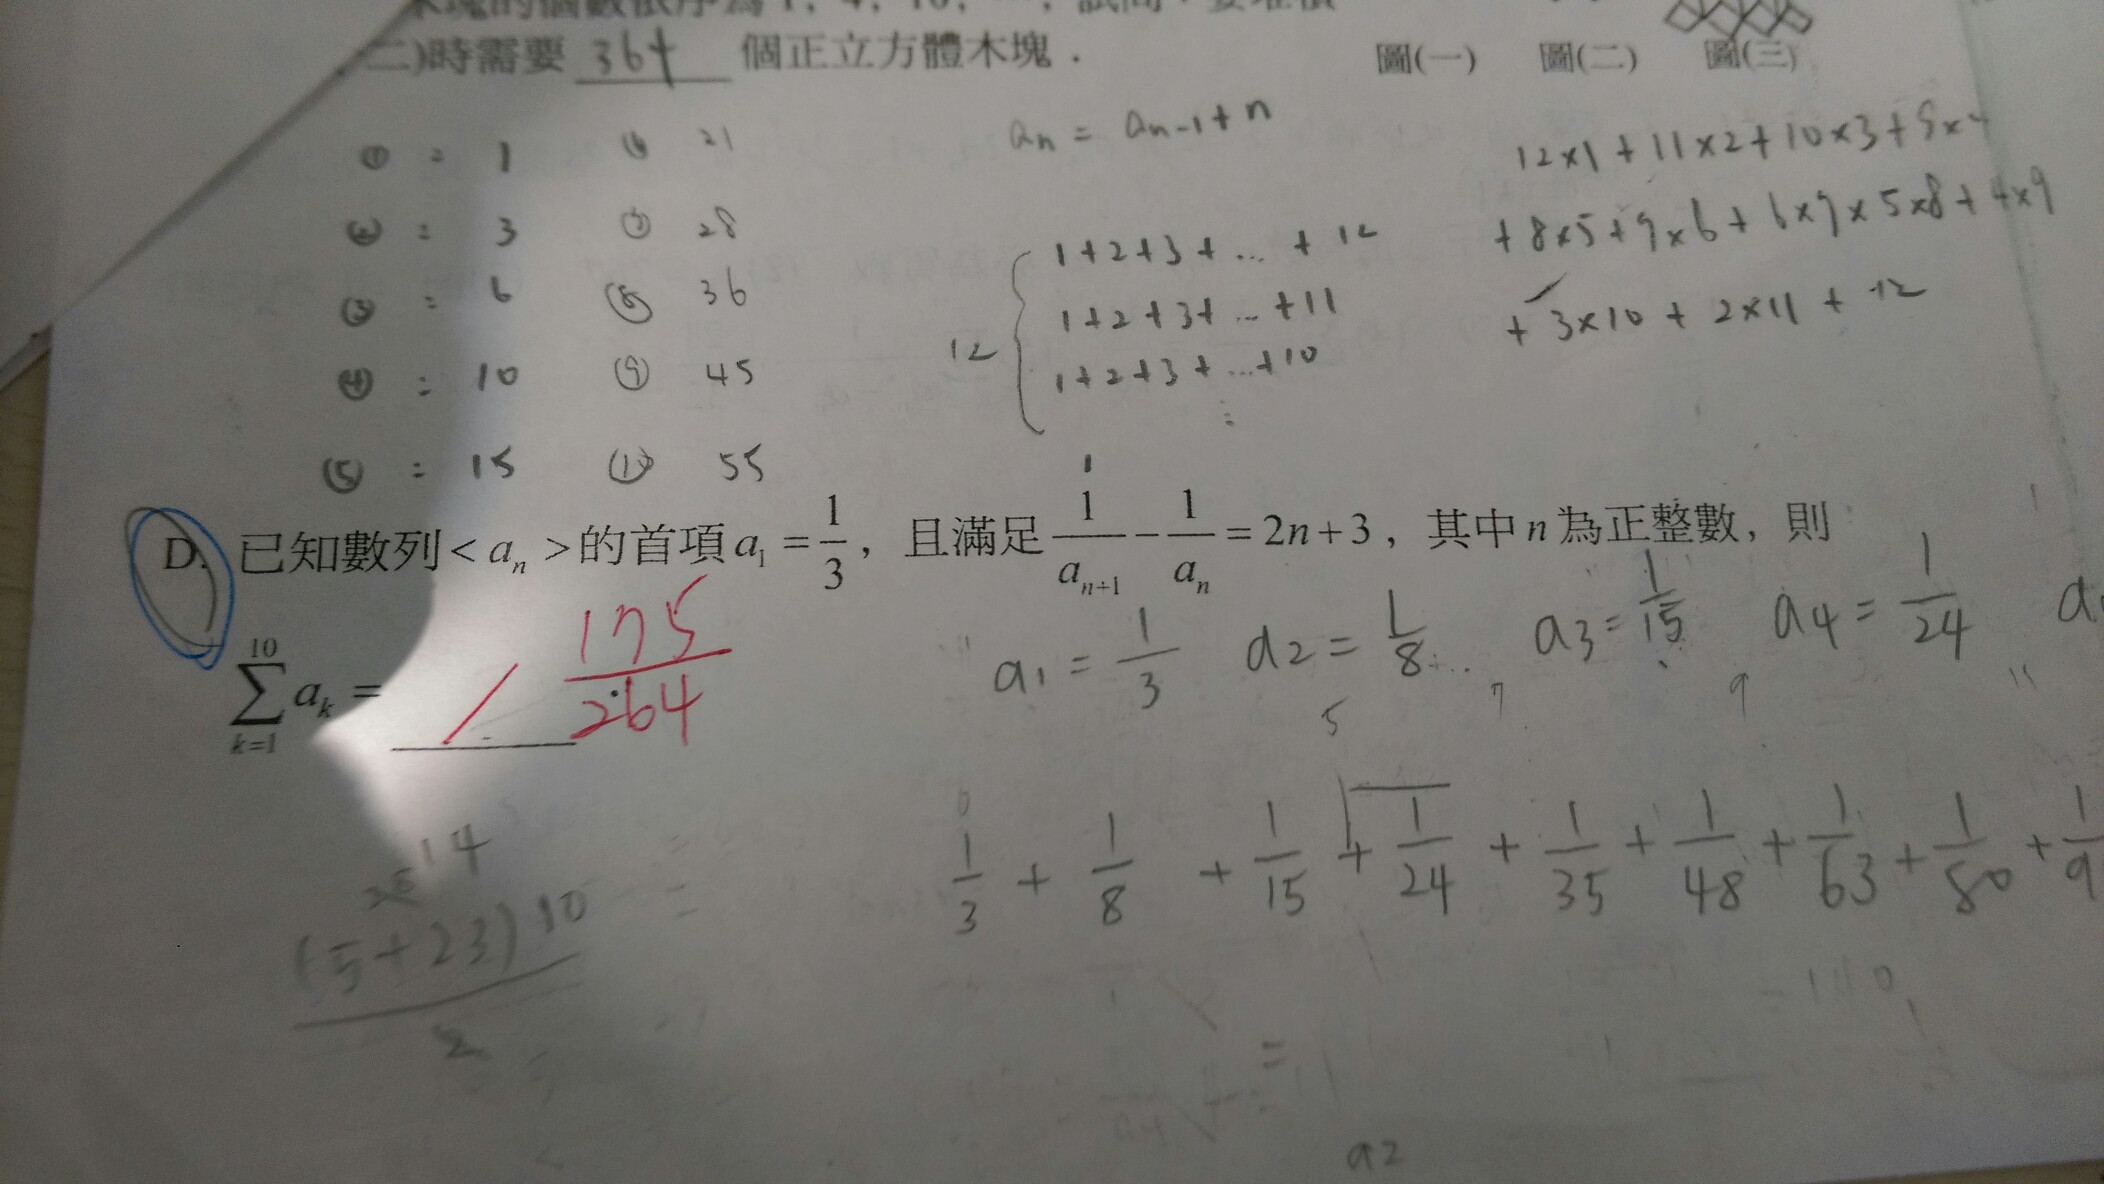 木塊的個數依序為 1, 4, 10, …, 試問:要堆積
二)時需要 364 個正立方體木塊.
圖(一) 圖(二) 圖(三)
① : 1 ⑥ 21
② : 3 ⑦ 28
③ : 6 ⑧ 36
④ : 10 ⑨ 45
⑤ : 15 ⑩ 55
an = an-1+n
12 { 1+2+3+ … + 12
1+2+3+ … +11
1+2+3+ … +10
⋮
12×1+11×2+10×3+9×4
+8×5+7×6+6×7×5×8+4×9
+3×10+2×11+12
D. 已知數列<aₙ>的首項a₁ = 1/3, 且滿足 1/aₙ₊₁ - 1/aₙ = 2n+3, 其中n為正整數, 則
∑ₖ₌₁¹⁰ aₖ = 175/264
a1 = 1/3 a2 = 1/8 a3 = 1/15 a4 = 1/24 a
5 7 9 11
1/3 + 1/8 + 1/15 + 1/24 + 1/35 + 1/48 + 1/63 + 1/80 + 1/9
14
(5+23)10
2
=
a2